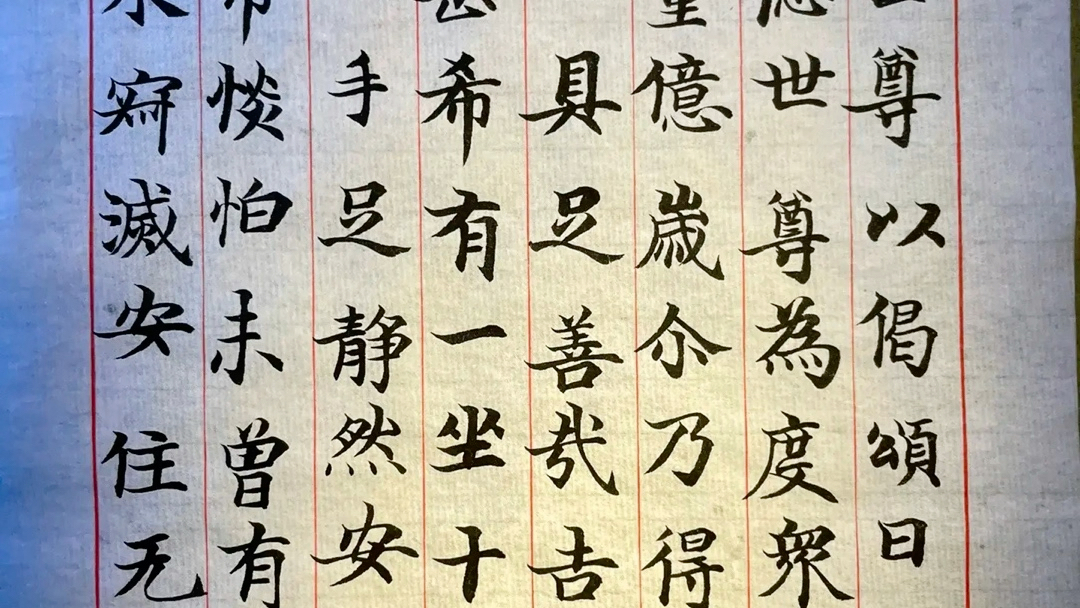 尊以偈頌曰
世尊為度衆
億歲尒乃得
具足善哉吉
甚希有一坐十
手足静然安
惔怕未曾有
永寂滅安住无